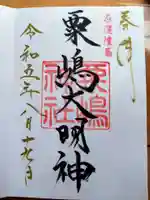 奉拝
粟嶋大明神
粟嶋
神社
令和五年八月十七日